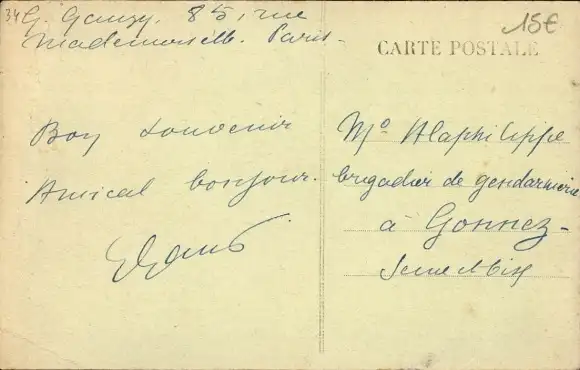 34
G. Gauzy. 85, rue
Mademoiselle. Paris.
15€
CARTE POSTALE
Bon souvenir
Amical bonjour.
Mo Alaphilippe
brigadier de gendarmerie
à Gonnez-
Seine et Oise